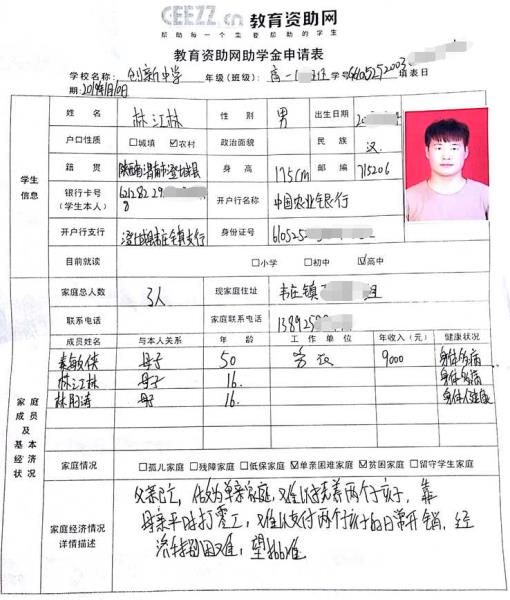 CEEZZ.cn 教育资助网
帮助每一个需要帮助的学生
教育资助网助学金申请表
学校名称: 创新中学 年级(班级): 高一 班 学号 610525 2003 填表日
期:
学生信息
姓名 林江林 性别 男 出生日期 20
户口性质 □城镇 ☑农村 政治面貌 民族 汉
籍贯 陕西省渭南市澄城县 身高 175cm 邮编 715206
银行卡号(学生本人) 621282 29 8 开户行名称 中国农业银行
开户行支行 澄城县韦庄镇支行 身份证号 610525
目前就读 □小学 □初中 ☑高中
家庭成员及基本经济状况
家庭总人数 3人 现家庭住址 韦庄镇 组
联系电话 家庭联系电话 13892
成员姓名 与本人关系 年龄 工作单位 年收入(元) 健康状况
秦敏侠 母子 50 务农 9000 身体多病
林江林 母子 16. 身体多病
林 涛 母子 16. 身体健康
家庭情况 □孤儿家庭 □残障家庭 □低保家庭 ☑单亲困难家庭 ☑贫困家庭 □留守学生家庭
家庭经济情况详情描述
父亲已亡, 成为单亲家庭, 难以抚养两个孩子, 靠
母亲平时打零工, 难以支付两个孩子的日常开销, 经
济特别困难, 望批准